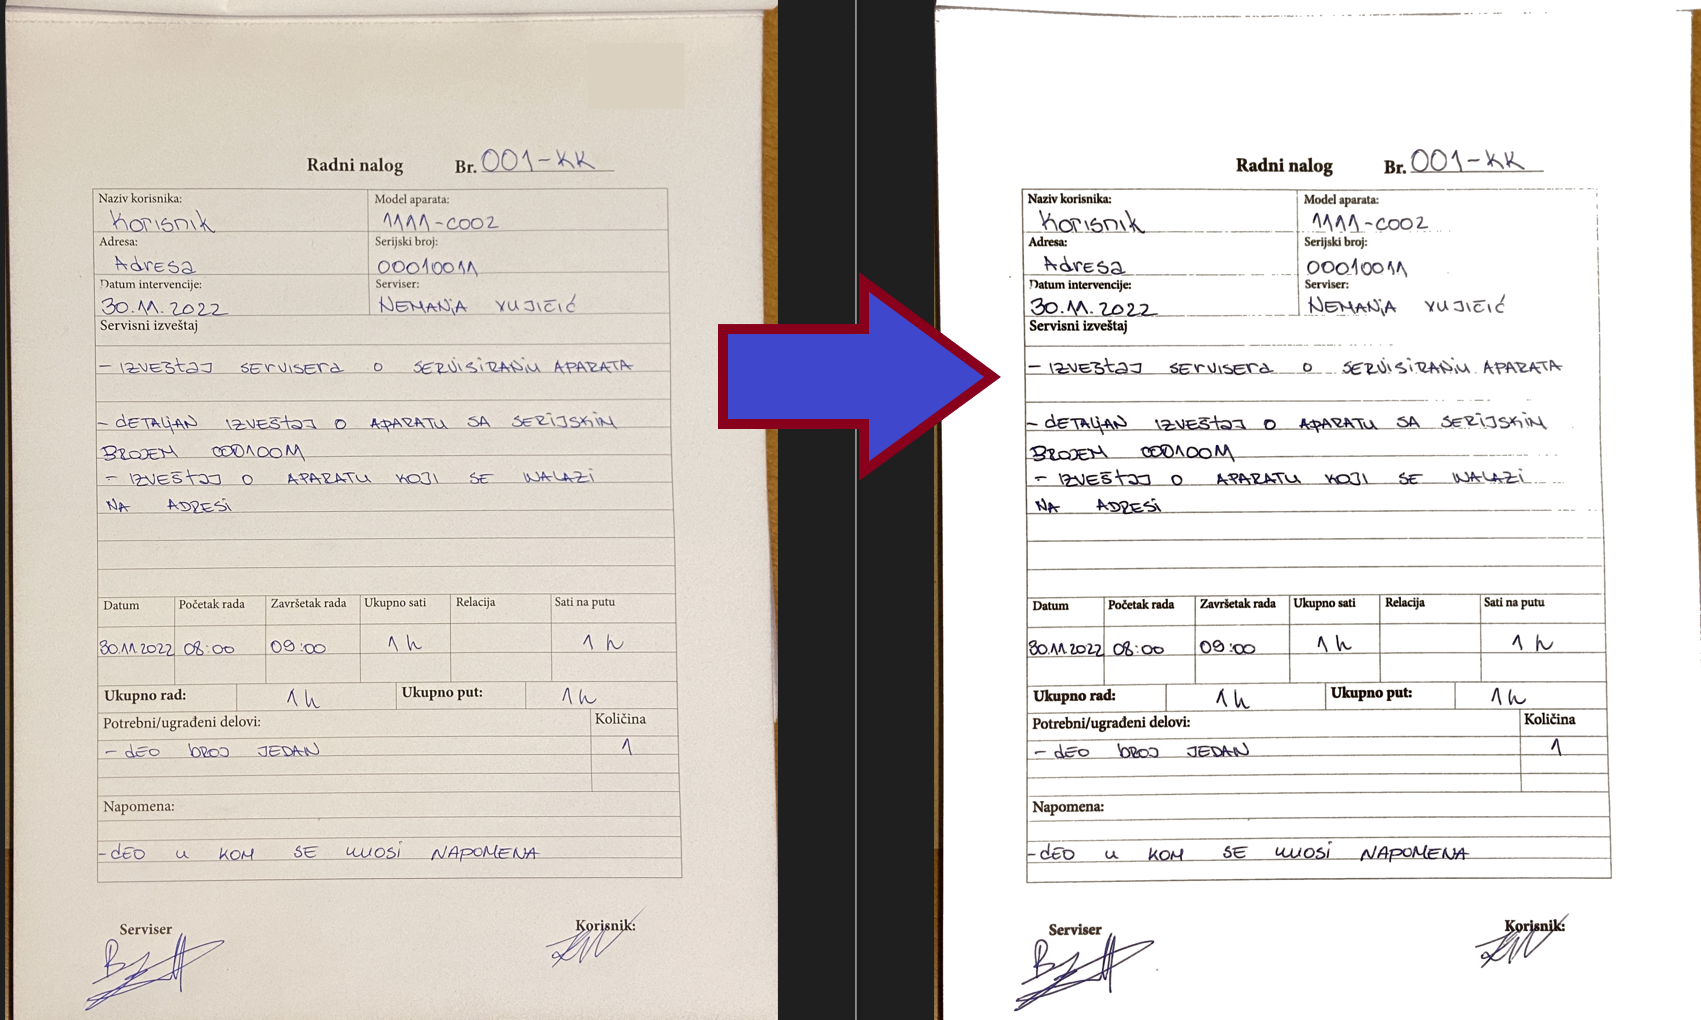 Radni nalog Br. 001-KK
Naziv korisnika: Model aparata:
Korisnik 1111-C002
Adresa: Serijski broj:
Adresa 00010011
Datum intervencije: Serviser:
30.11.2022 NEMANJA VUJIČIĆ
Servisni izveštaj
- IZVEŠTAJ SERVISERA O SERVISIRANJU APARATA
- DETALJAN IZVEŠTAJ O APARATU SA SERIJSKIM
BROJEM
- IZVEŠTAJ O APARATU KOJI SE NALAZI
NA ADRESI
Datum Početak rada Završetak rada Ukupno sati Relacija Sati na putu
30.11.2022 08:00 09:00 1h 1h
Ukupno rad: 1h Ukupno put: 1h
Potrebni/ugrađeni delovi: Količina
- DEO BROJ JEDAN 1
Napomena:
- DEO U KOM SE UNOSI NAPOMENA
Serviser Korisnik:
Radni nalog Br. 001-KK
Naziv korisnika: Model aparata:
Korisnik 1111-C002
Adresa: Serijski broj:
Adresa 00010011
Datum intervencije: Serviser:
30.11.2022 NEMANJA VUJIČIĆ
Servisni izveštaj
- IZVEŠTAJ SERVISERA O SERVISIRANJU APARATA
- DETALJAN IZVEŠTAJ O APARATU SA SERIJSKIM
BROJEM
- IZVEŠTAJ O APARATU KOJI SE NALAZI
NA ADRESI
Datum Početak rada Završetak rada Ukupno sati Relacija Sati na putu
30.11.2022 08:00 09:00 1h 1h
Ukupno rad: 1h Ukupno put: 1h
Potrebni/ugrađeni delovi: Količina
- DEO BROJ JEDAN 1
Napomena:
- DEO U KOM SE UNOSI NAPOMENA
Serviser Korisnik: